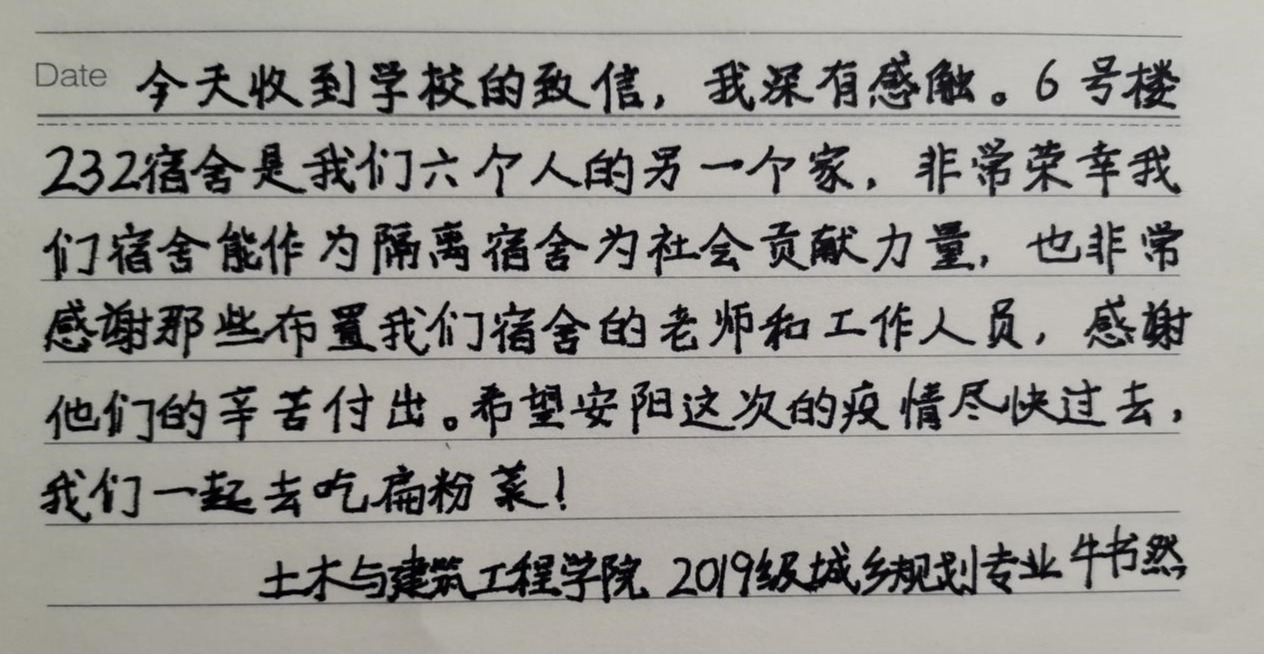 Date 今天收到学校的致信，我深有感触。6号楼
232宿舍是我们六个人的另一个家，非常荣幸我
们宿舍能作为隔离宿舍为社会贡献力量，也非常
感谢那些布置我们宿舍的老师和工作人员，感谢
他们的辛苦付出。希望安阳这次的疫情尽快过去，
我们一起去吃扁粉菜！
土木与建筑工程学院 2019级城乡规划专业 牛书然